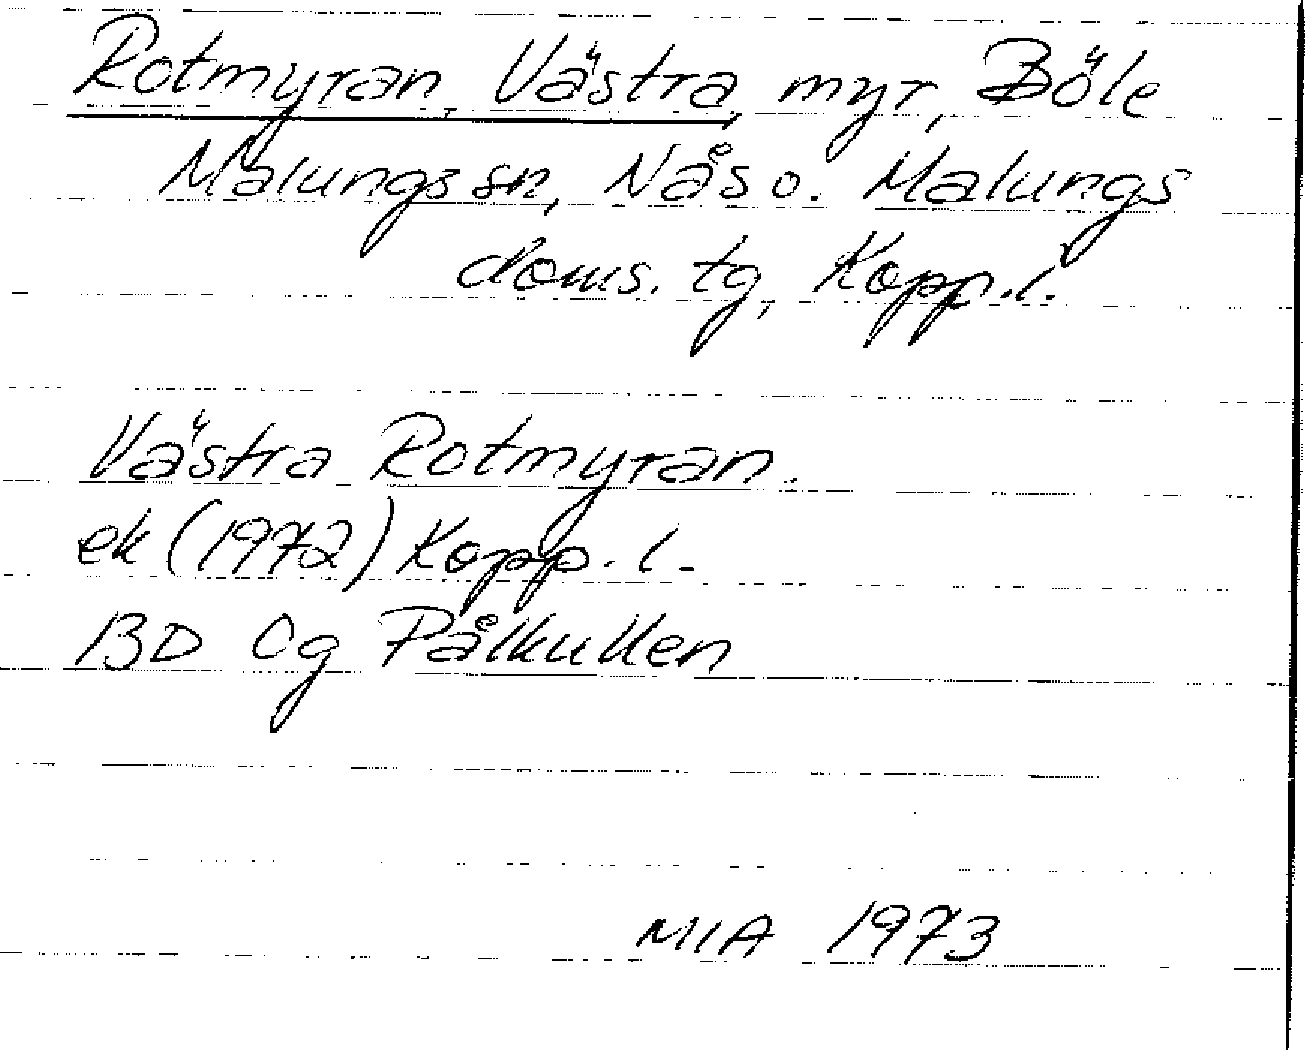 Rotmyran, Västra, myr, Böle
Malungs sn, Nås o. Malungs
doms. tg, Kopp. l.
Västra Rotmyran.
ek (1972) Kopp. l.
BD Og Pålkullen
MIA 1973